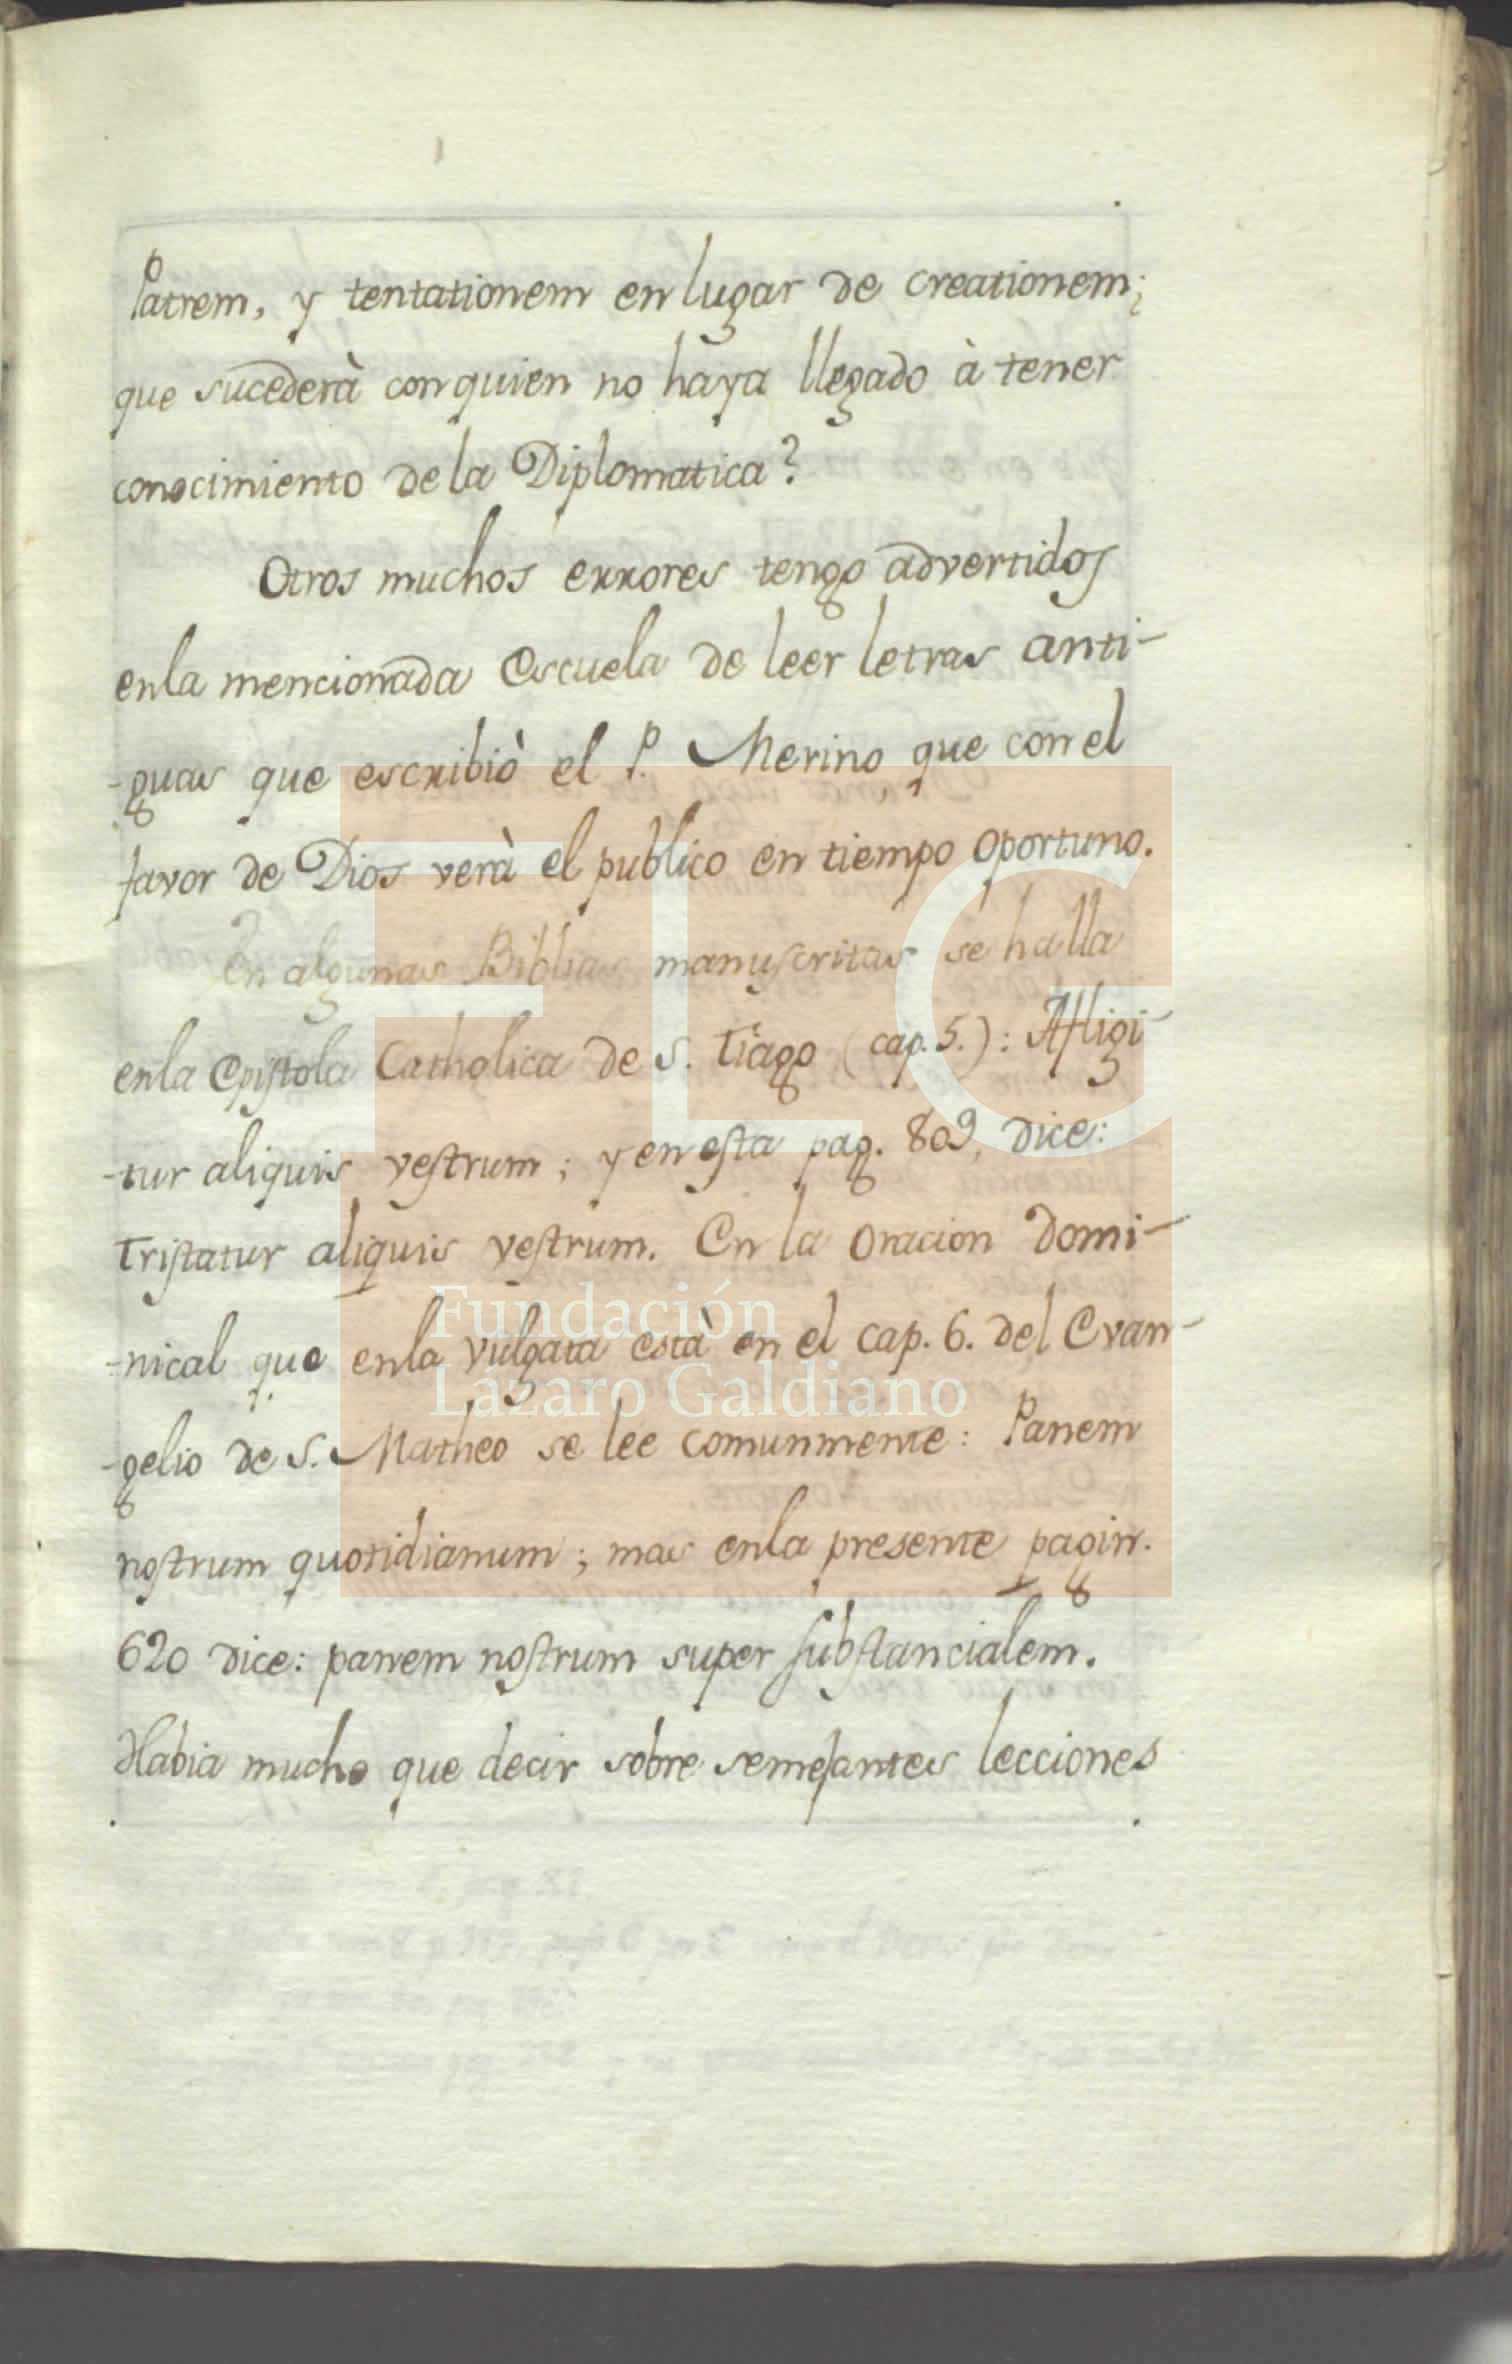 Patrem, y tentationem en lugar de creationem;
que sucederà con quien no haya llegado à tener
conocimiento de la Diplomatica?
Otros muchos errores tengo advertidos
en la mencionada Escuela de leer letras anti-
-guas que escribiò el P. Merino, que con el
favor de Dios verà el publico en tiempo oportuno.
En algunas Biblias manuscritas se halla
en la Epistola Catholica de S. Tiago (cap. 5.): Afligi-
-tur aliquis vestrum; y en esta pag. 809, dice:
Tristatur aliquis vestrum. En la Oracion Domi-
-nical que en la Vulgata està en el cap. 6. del Evan-
Fundación
Lázaro Galdiano
-gelio de S. Matheo se lee comunmente: Panem
nostrum quotidianum; mas en la presente pagin.
620 dice: panem nostrum super substancialem.
Habia mucho que decir sobre semejantes lecciones
FLG